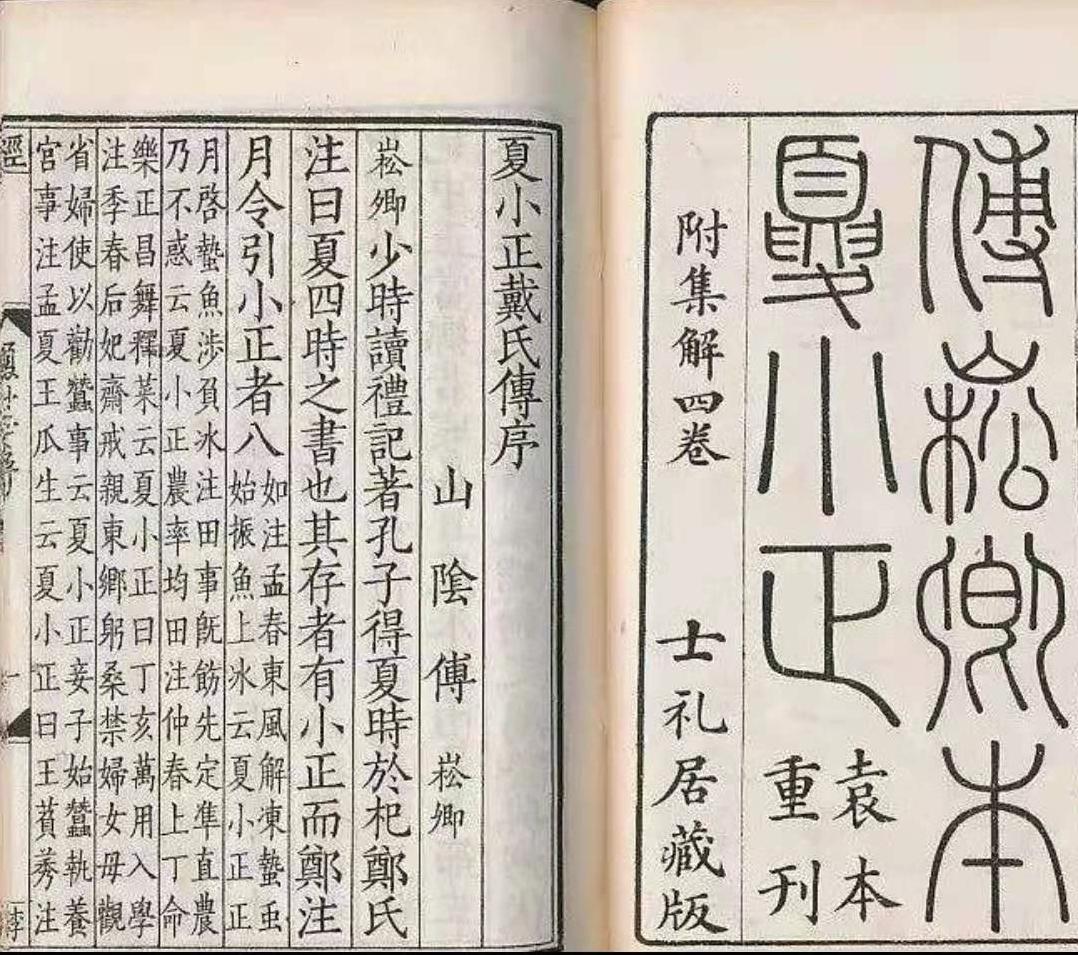 傅崧卿本
夏小正
袁本
重刊
附集解四卷
士礼居藏版
夏小正戴氏傳序
山陰傅崧卿
崧卿少時讀禮記著孔子得夏時於杞鄭氏
注曰夏四時之書也其存者有小正而鄭注
月令引小正者八
如注孟春東風解凍蟄虫
始振魚上冰云夏小正正
月啓蟄魚涉負冰注田事既飭先定準直農
乃不惑云夏小正農率均田注仲春上丁命
樂正昌舞釋菜云夏小正曰丁亥萬用入學
注季春后妃齋戒親東鄉躬桑禁婦女毋觀
省婦使以勸蠶事云夏小正妾子始蠶執養
宮事注孟夏王瓜生云夏小正曰王萯莠注